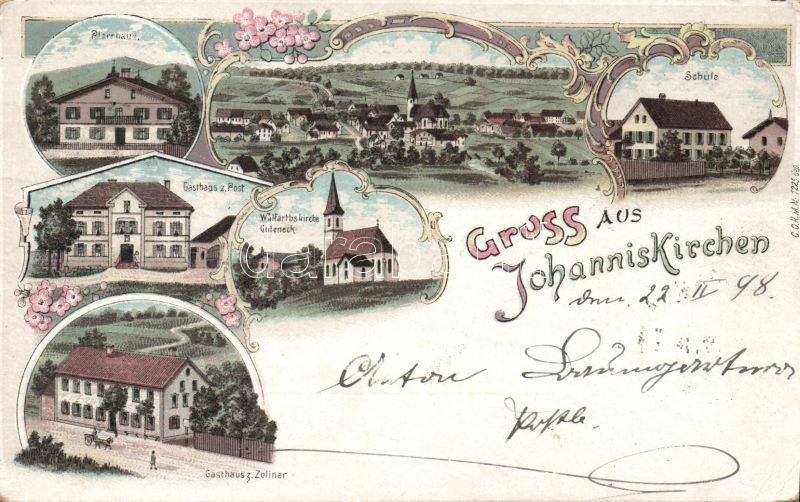 Pfarrhaus.
Schule
Gasthaus z. Post
Walfarthskirche
Guteneck
Gruss aus
Johanniskirchen
den 22. IV 98.
Anton Baumgartner
Gasthaus z. Zollner